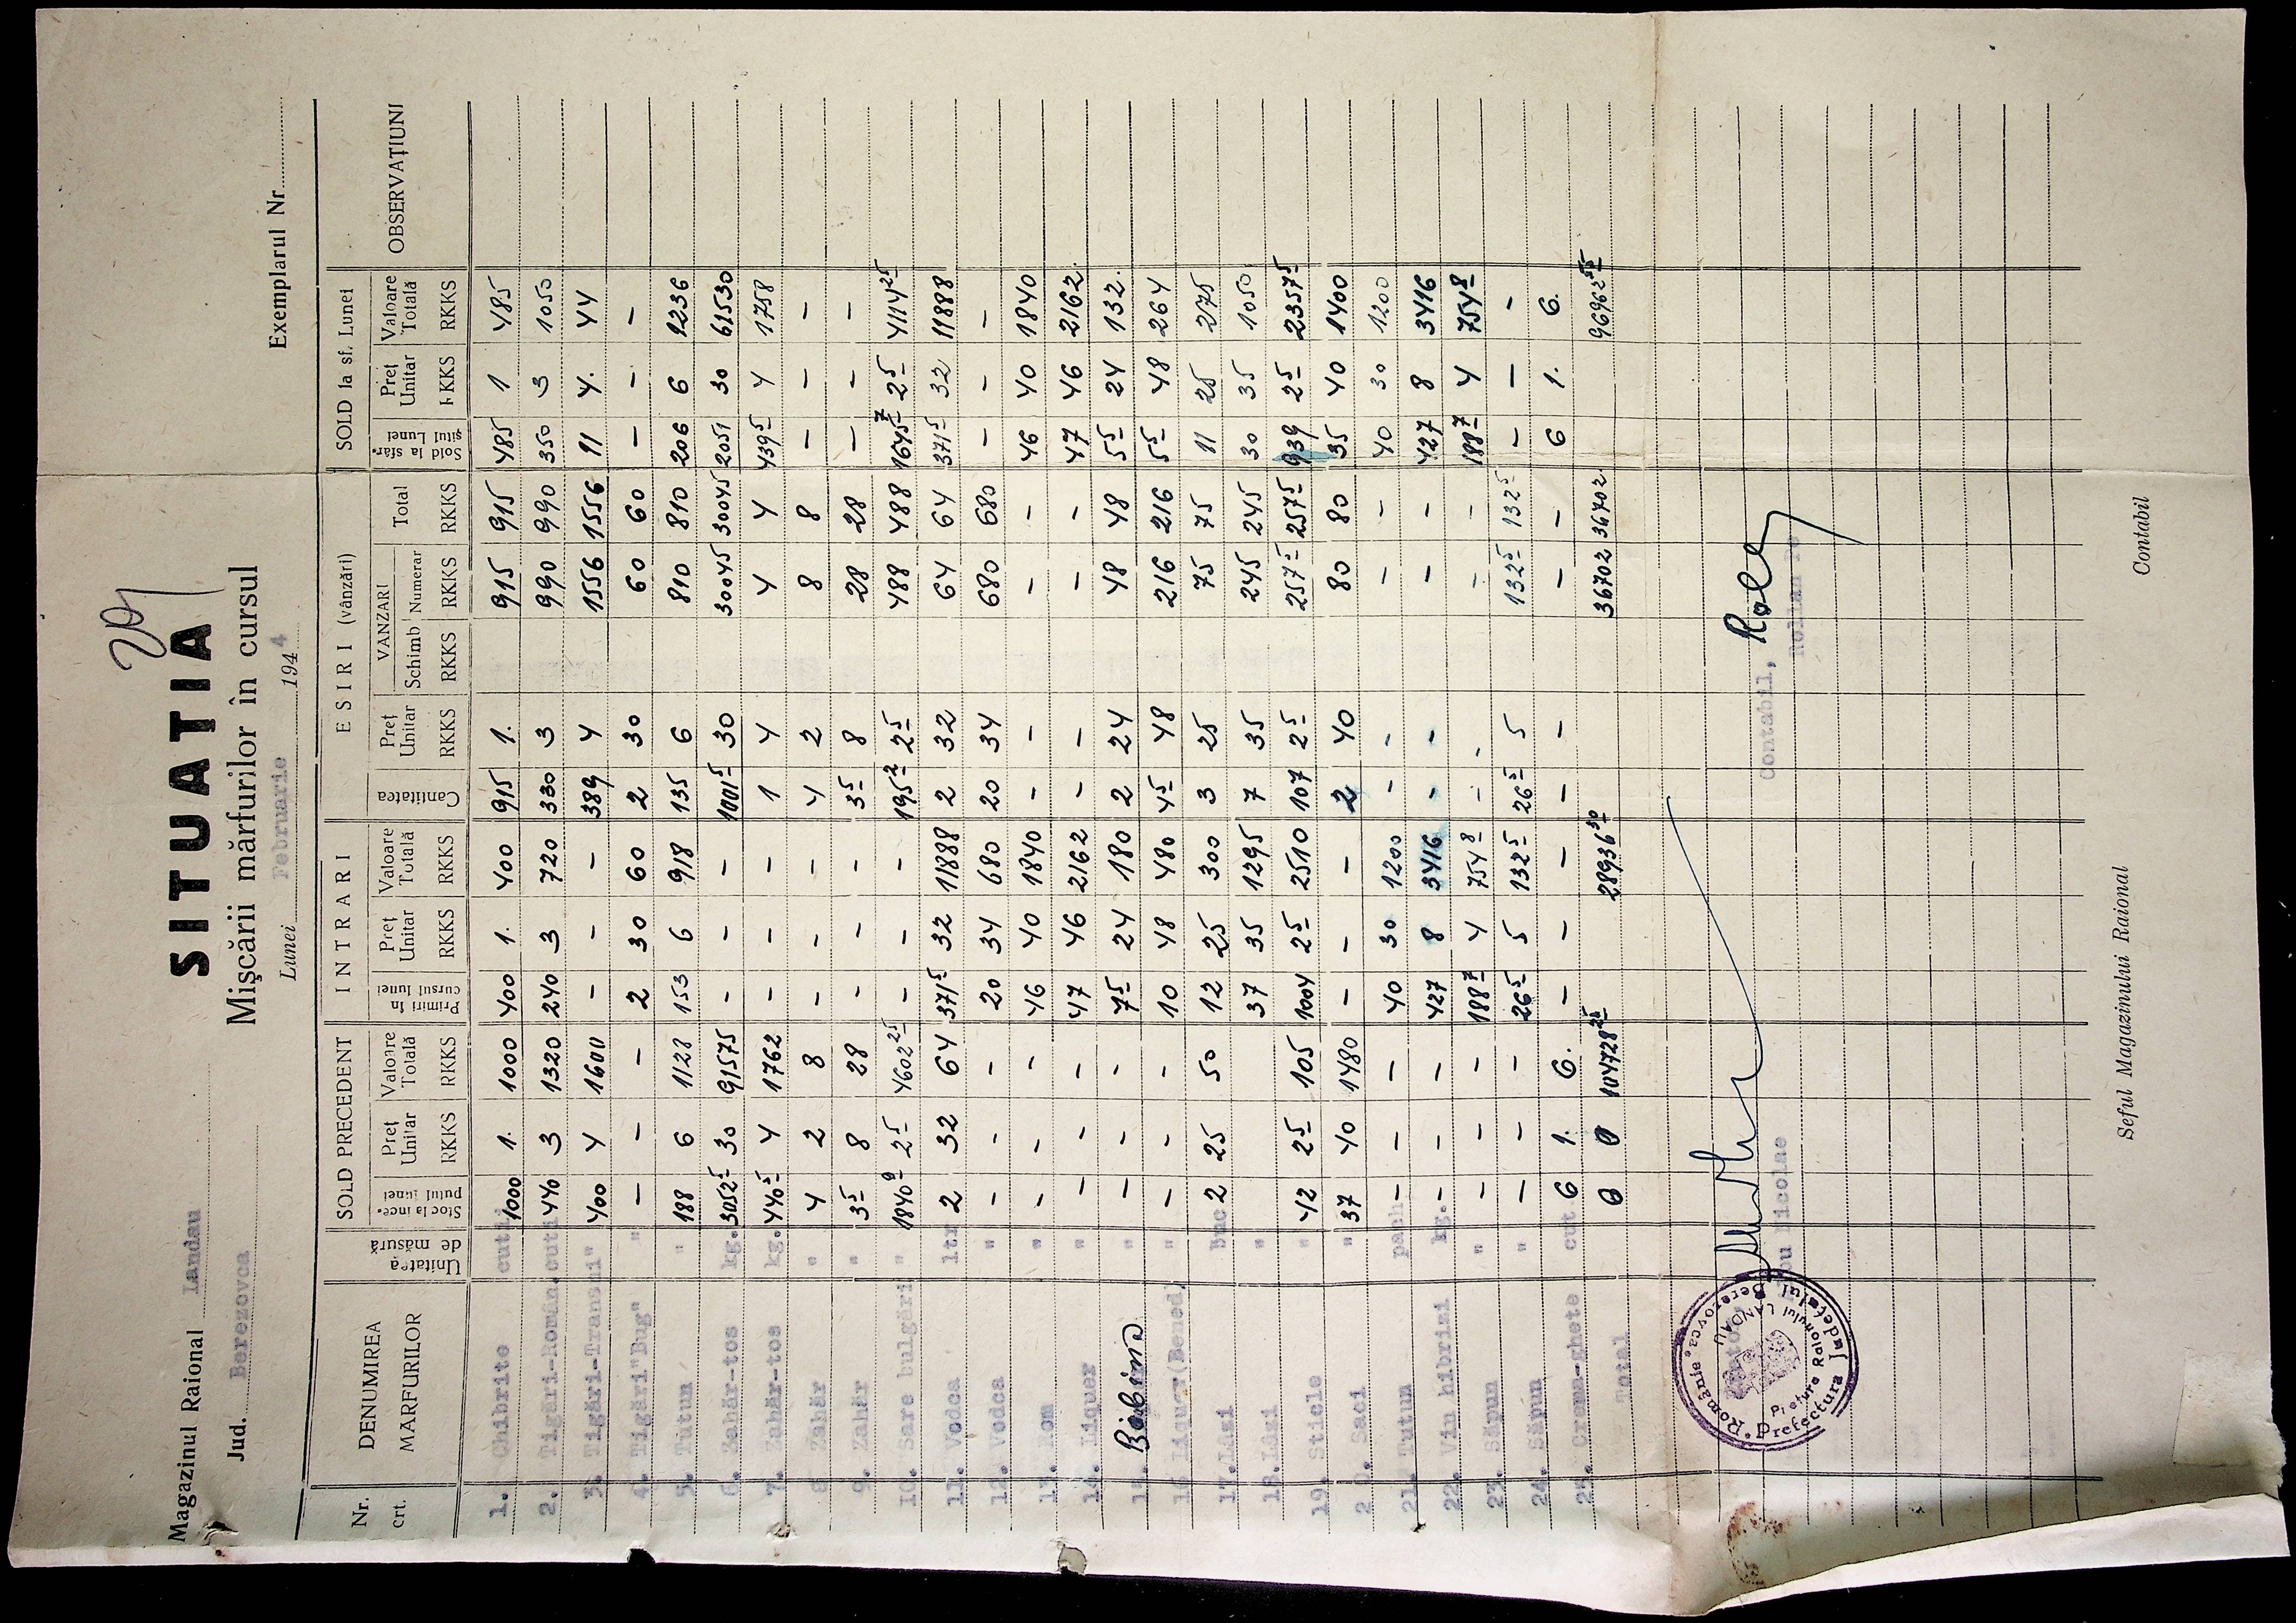 201
Magazinul Raional Landau
Jud. Berezovca
SITUATIA
Mişcării mărfurilor în cursul
Lunei Februarie 1944
Exemplarul Nr.
Nr. crt. DENUMIREA MARFURILOR Unitatea de măsură SOLD PRECEDENT INTRARI ESIRI (vânzări) SOLD la sf. Lunei OBSERVAŢIUNI
Stoc la începutul lunei Preţ Unitar RKKS Valoare Totală RKKS Primiri în cursul lunei Preţ Unitar RKKS Valoare Totală RKKS Cantitatea Preţ Unitar RKKS VANZARI Schimb RKKS Numerar RKKS Total RKKS Sold la sfârşitul Lunei Preţ Unitar RKKS Valoare Totală RKKS
1. Chibrite cuti 1000 1. 1000 400 1. 400 915 1. 915 915 485 1 485
2. Tigări-Român. cuti 440 3 1320 240 3 720 330 3 990 990 350 3 1050
3. Tigări-Transni " 400 4 1600 - - - 389 4 1556 1556 11 4. 44
4. Tigări "Bug" " - - - 2 30 60 2 30 60 60 - - -
5. Tutun " 188 6 1128 153 6 918 135 6 810 810 206 6 1236
6. Zahăr-tos kg. 3052⁵ 30 91575 - - - 1001⁵ 30 30045 30045 2051 30 61530
7. Zahăr-tos kg. 440⁵ 4 1762 - - - 1 4 4 4 439⁵ 4 1758
8. Zahăr " 4 2 8 - - - 4 2 8 8 - - -
9. Zahăr " 3⁵ 8 28 - - - 3⁵ 8 28 28 - - -
10. Sare bulgări " 1840⁹ 2⁵ 4602²⁵ - - - 195² 2⁵ 488 488 1645⁷ 2⁵ 4114²⁵
11. Vodca ltr 2 32 64 371⁵ 32 11888 2 32 64 64 371⁵ 32 11888
12. Vodca " - - - 20 34 680 20 34 680 680 - - -
13. Rom " - - - 46 40 1840 - - - - 46 40 1840
14. Liquer " - - - 47 46 2162 - - - - 47 46 2162.
15. Bobina " - - - 7⁵ 24 180 2 24 48 48 5⁵ 24 132.
16 Liquer(Bened) " - - - 10 48 480 4⁵ 48 216 216 5⁵ 48 264
17. Lăzi buc 2 25 50 12 25 300 3 25 75 75 11 25 275
18. Lăzi " 37 35 1295 7 35 245 245 30 35 1050
19. Sticle " 42 2⁵ 105 1004 2⁵ 2510 107 2⁵ 257⁵ 257⁵ 939 2⁵ 2357⁵
20. Saci " 37 40 1480 - - - 2 40 80 80 35 40 1400
21. Tutun pach - - - 40 30 1200 - - - - 40 30 1200
22. Vin hibrizi kg. - - - 427 8 3416 - - - - 427 8 3416
23. Săpun " - - - 188⁷ 4 754⁸ - - - - 188⁷ 4 754⁸
24. Săpun " - - - 26⁵ 5 132⁵ 26⁵ 5 132⁵ 132⁵ - - -
25. Crema-ghete cut 6 1. 6. - - - - - - - 6 1. 6.
Total 0 0 104728²⁵ 28936³⁰ 36702 36702 96962⁵⁵
Nicolae
Contabil,
Rollan
România
Prefectura Judeţului Berezovca
Pretura Raionului LANDAU
Seful Magazinului Raional
Contabil